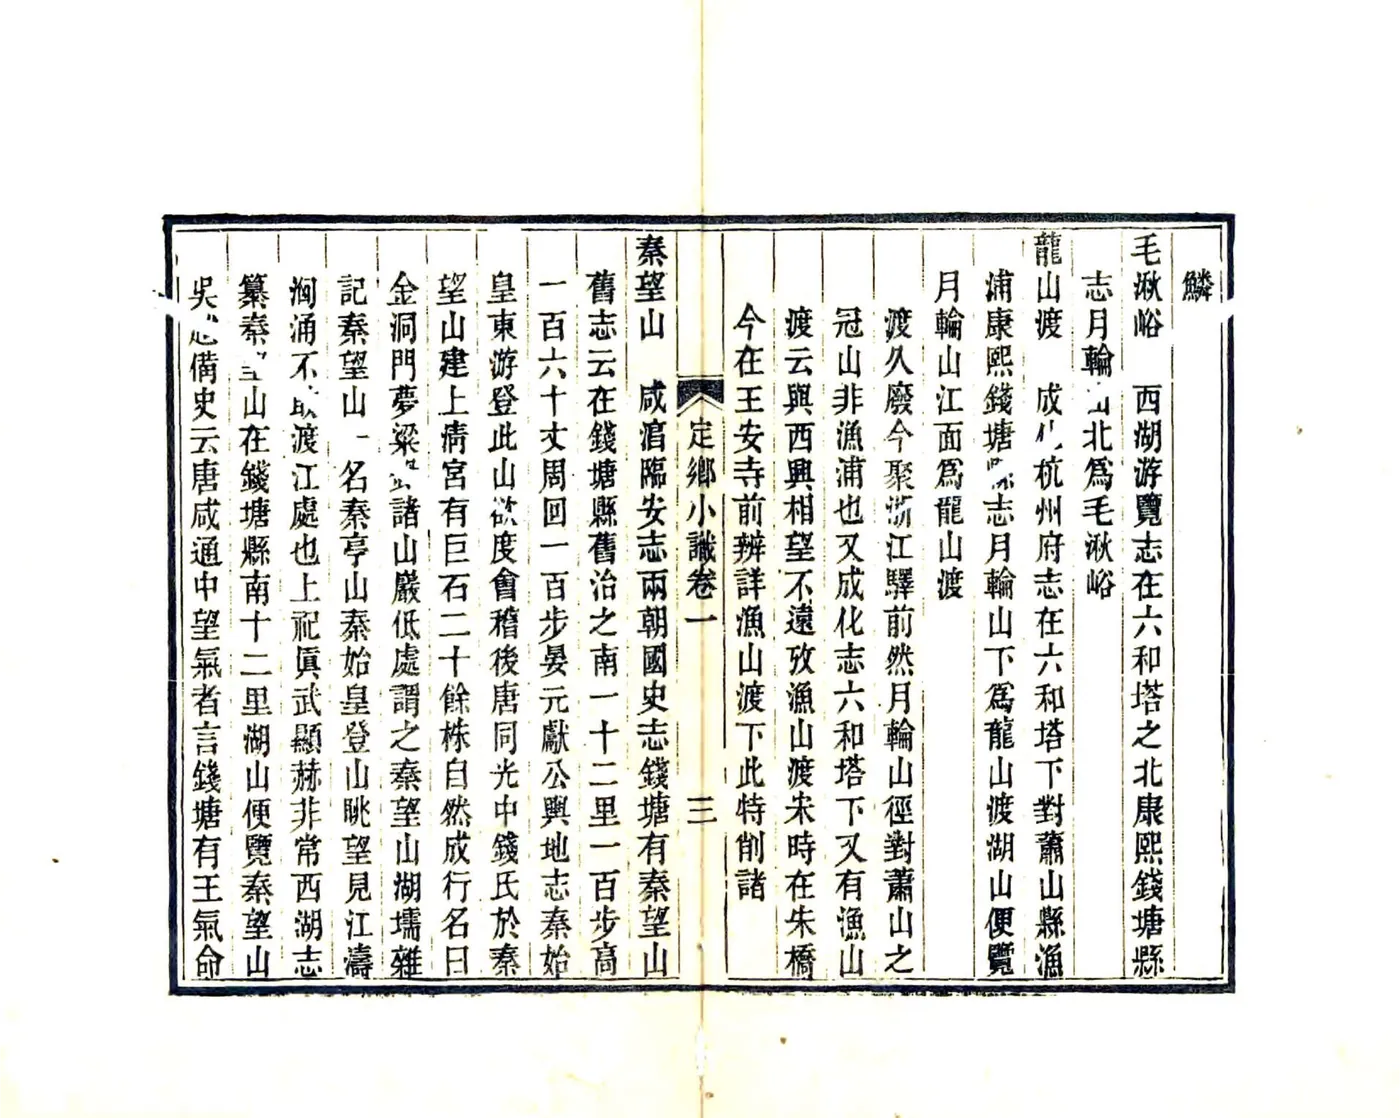 鱗
毛湫峪　西湖游覽志在六和塔之北康熙錢塘縣
志月輪山北爲毛湫峪
龍山渡　成化杭州府志在六和塔下對蕭山縣漁
浦康熙錢塘縣志月輪山下爲龍山渡湖山便覽
月輪山江面爲龍山渡
渡久廢今聚浙江驛前然月輪山徑對蕭山之
冠山非漁浦也又成化志六和塔下又有漁山
渡云與西興相望不遠攷漁山渡宋時在朱橋
今在王安寺前辨詳漁山渡下此特削諸
定鄉小識卷一　三
秦望山　咸淳臨安志兩朝國史志錢塘有秦望山
舊志云在錢塘縣舊治之南一十二里一百步高
一百六十丈周回一百步晏元獻公輿地志秦始
皇東游登此山欲度會稽後唐同光中錢氏於秦
望山建上淸宮有巨石二十餘株自然成行名曰
金洞門夢粱諸山巖低處謂之秦望山湖壖雜
記秦望山一名秦亭山秦始皇登山眺望見江濤
洶涌不敢渡江處也上祀眞武顯赫非常西湖志
纂秦望山在錢塘縣南十二里湖山便覽秦望山
吳越備史云唐咸通中望氣者言錢塘有王氣命